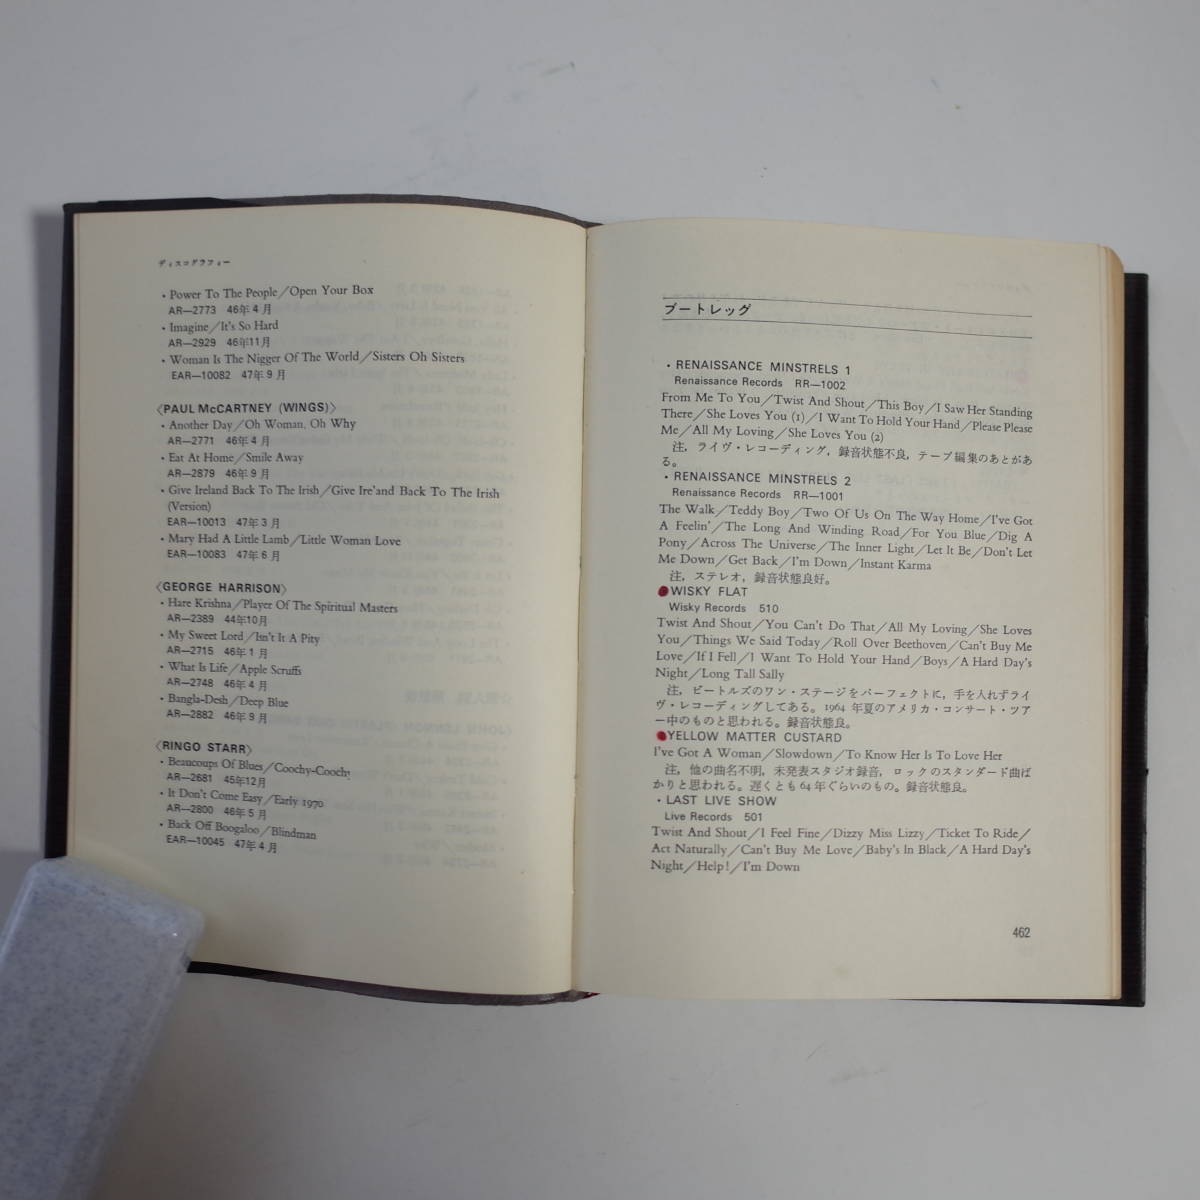 ディスコグラフィー
・Power To The People／Open Your Box
AR—2773 46年4月
・Imagine／It's So Hard
AR—2929 46年11月
・Woman Is The Nigger Of The World／Sisters Oh Sisters
EAR—10082 47年9月
〈PAUL McCARTNEY (WINGS)〉
・Another Day／Oh Woman, Oh Why
AR—2771 46年4月
・Eat At Home／Smile Away
AR—2879 46年9月
・Give Ireland Back To The Irish／Give Ire'and Back To The Irish
(Version)
EAR—10013 47年3月
・Mary Had A Little Lamb／Little Woman Love
EAR—10083 47年6月
〈GEORGE HARRISON〉
・Hare Krishna／Player Of The Spiritual Masters
AR—2389 44年10月
・My Sweet Lord／Isn't It A Pity
AR—2715 46年1月
・What Is Life／Apple Scruffs
AR—2748 46年4月
・Bangla-Desh／Deep Blue
AR—2882 46年9月
〈RINGO STARR〉
・Beaucoups Of Blues／Coochy-Coochy
AR—2681 45年12月
・It Don't Come Easy／Early 1970
AR—2800 46年5月
・Back Off Boogaloo／Blindman
EAR—10045 47年4月
ブートレッグ
・RENAISSANCE MINSTRELS 1
Renaissance Records RR—1002
From Me To You／Twist And Shout／This Boy／I Saw Her Standing
There／She Loves You (1)／I Want To Hold Your Hand／Please Please
Me／All My Loving／She Loves You (2)
注，ライヴ・レコーディング，録音状態不良，テープ編集のあとがあ
る。
・RENAISSANCE MINSTRELS 2
Renaissance Records RR—1001
The Walk／Teddy Boy／Two Of Us On The Way Home／I've Got
A Feelin'／The Long And Winding Road／For You Blue／Dig A
Pony／Across The Universe／The Inner Light／Let It Be／Don't Let
Me Down／Get Back／I'm Down／Instant Karma
注，ステレオ，録音状態良好。
・WISKY FLAT
Wisky Records 510
Twist And Shout／You Can't Do That／All My Loving／She Loves
You／Things We Said Today／Roll Over Beethoven／Can't Buy Me
Love／If I Fell／I Want To Hold Your Hand／Boys／A Hard Day's
Night／Long Tall Sally
注，ビートルズのワン・ステージをパーフェクトに，手を入れずライ
ヴ・レコーディングしてある。1964年夏のアメリカ・コンサート・ツア
ー中のものと思われる。録音状態良。
・YELLOW MATTER CUSTARD
I've Got A Woman／Slowdown／To Know Her Is To Love Her
注，他の曲名不明，未発表スタジオ録音，ロックのスタンダード曲ば
かりと思われる。遅くとも64年ぐらいのもの。録音状態良。
・LAST LIVE SHOW
Live Records 501
Twist And Shout／I Feel Fine／Dizzy Miss Lizzy／Ticket To Ride／
Act Naturally／Can't Buy Me Love／Baby's In Black／A Hard Day's
Night／Help!／I'm Down
462